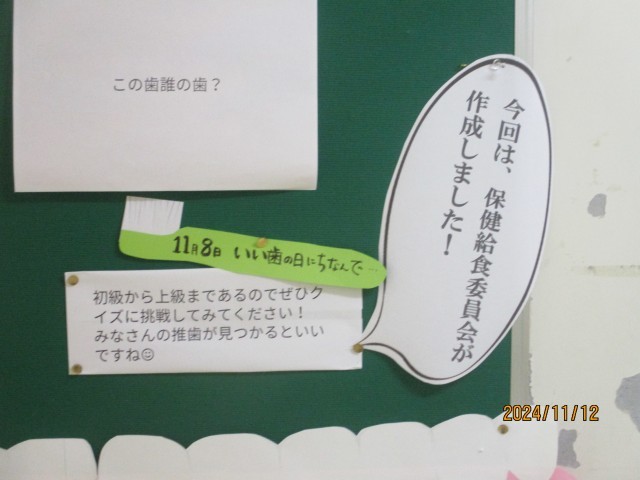 この歯誰の歯？
今回は、保健給食委員会が
作成しました！
11月8日 いい歯の日にちなんで…
初級から上級まであるのでぜひク
イズに挑戦してみてください！
みなさんの推歯が見つかるといい
ですね☺
2024/11/12